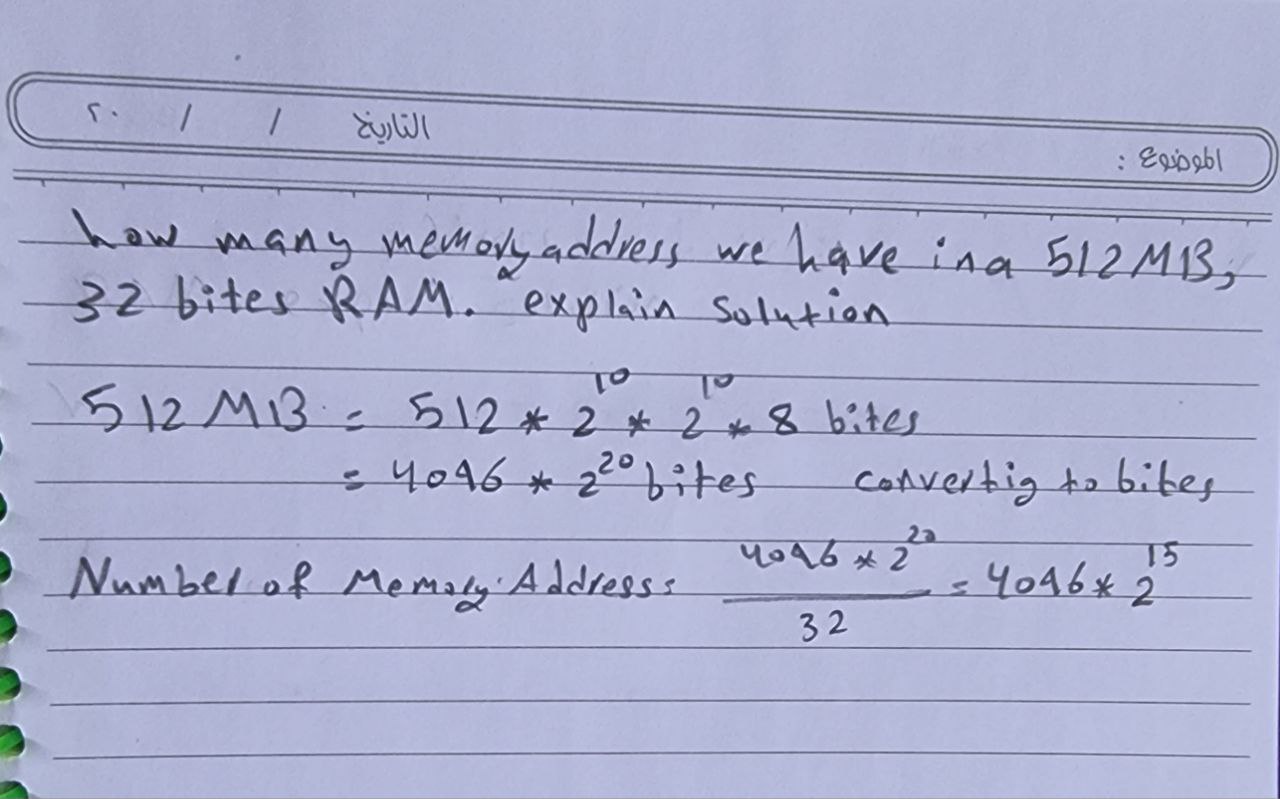 التاريخ / / ٢٠
الموضوع :
how many memory address we have in a 512 MB,
32 bites RAM. explain solution
512 MB = 512 * 2^10 * 2^10 * 8 bites
= 4096 * 2^20 bites convertig to bites
Number of Memory Address: 4096 * 2^20 / 32 = 4096 * 2^15